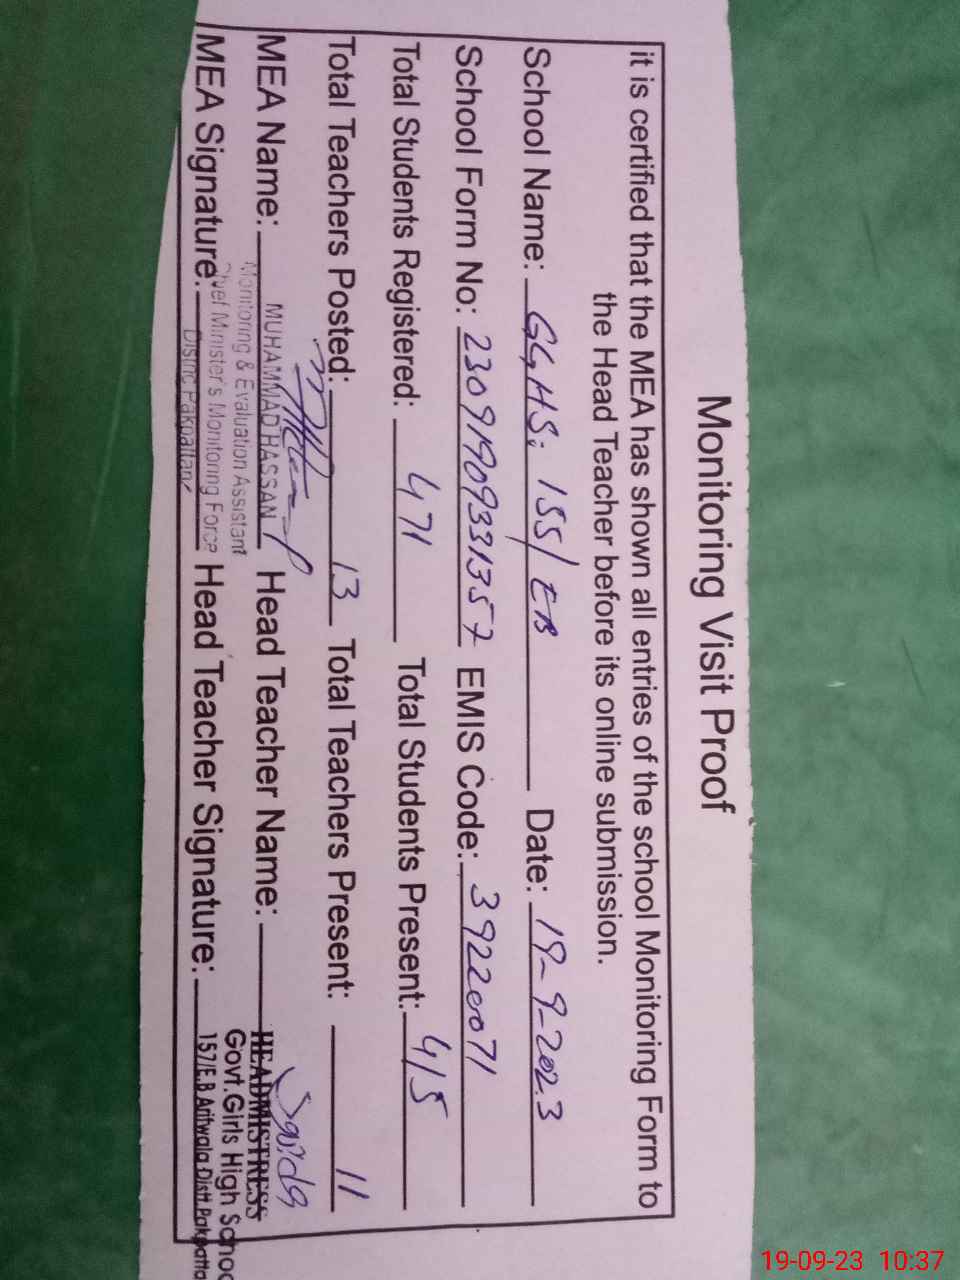 Monitoring Visit Proof
it is certified that the MEA has shown all entries of the school Monitoring Form to
the Head Teacher before its online submission.
School Name: GGHS: 155/EB Date: 19-9-2023
School Form No: 23091909331357 EMIS Code: 39220071
Total Students Registered: 471 Total Students Present: 415
Total Teachers Posted: 13 Total Teachers Present: 11
MEA Name: MUHAMMAD HASSAN Head Teacher Name: HEADMISTRESS
Monitoring & Evaluation Assistant Govt.Girls High Schoo
MEA Signature: Chief Minister's Monitoring Force Head Teacher Signature: 157/E.B Arifwala Distt.Pakpatta
Distric Pakpattan
19-09-23 10:37